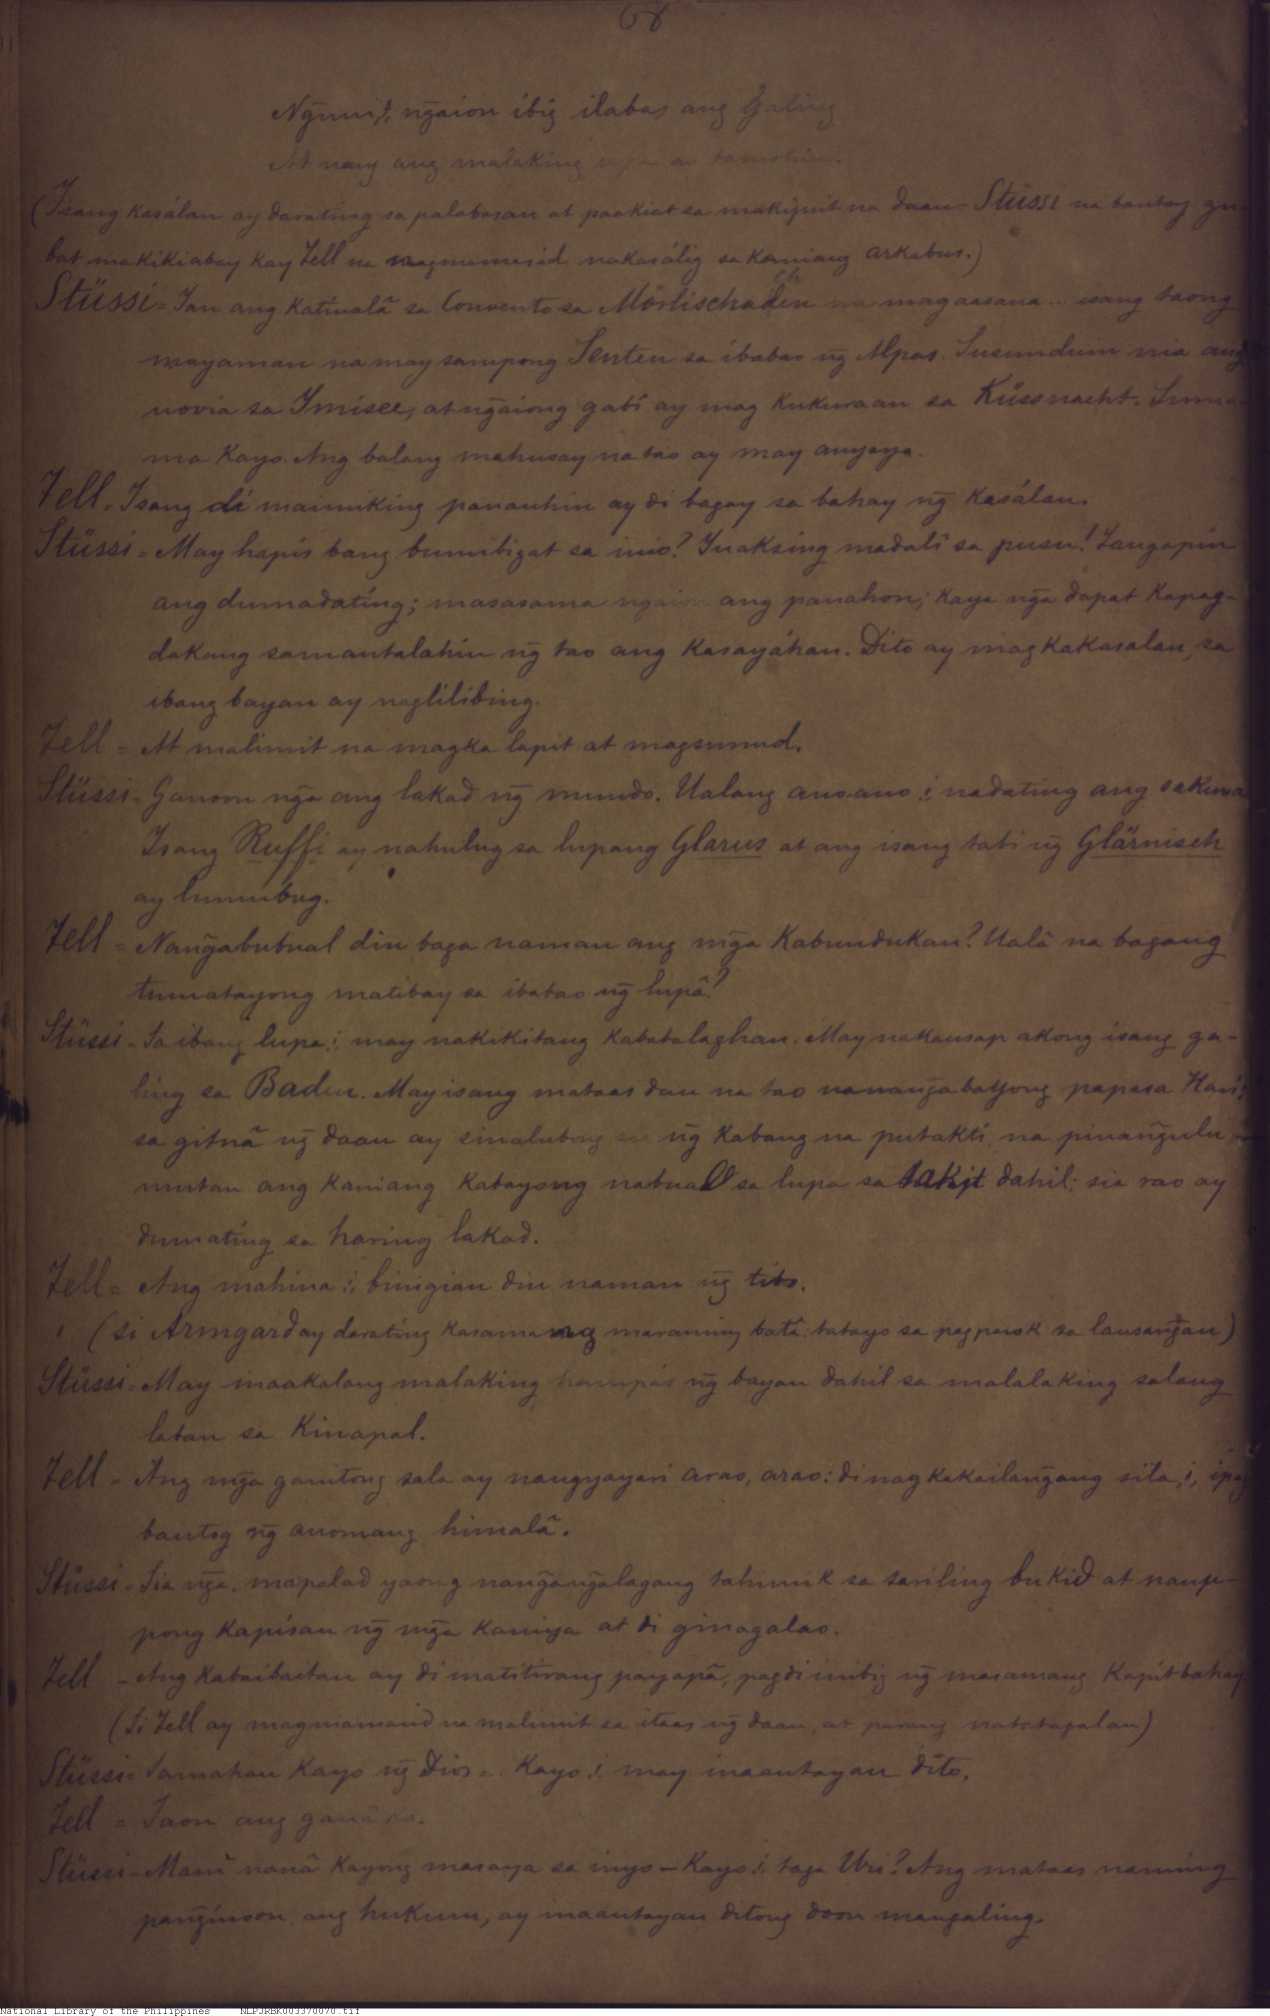 68
Ngunі't, ng̃aion ibig ilabas ang Galing
At nang ang malaking
(Isang kasálan ay darating sa palabasan at paakiat sa makipuit na daan - Stüssi na bantay gu-
bat makikiabay kay Tell na nagmamasid nakasálig sa kaniang arkabus.)
Stüssi = Ian ang katiualã sa Convento sa Mörlischachen na magaasaua .. isang taong
mayaman na may sampong Senten sa ibabao ng̃ Alpas. Susunduin nia ang
novia sa Ymisee, at ng̃aiong gabi ay mag kukuraan sa Küssnacht. Suma-
ma kayo. Ang balang mahusay na tao ay may anyaya.
Tell = Isang di maimiking panauhin ay di bagay sa bahay ng̃ kasálan.
Stüssi = May hapis bang bumibigat sa inio? Iuaksing madali sa pusu! Tangapin
ang dumadating; masasama ng̃aion ang panahon; kaya ng̃a dapat kapag-
dakang samantalahin ng̃ tao ang kasayáhan. Dito ay magkakasalan, sa
ibang bayan ay naglilibing.
Tell = At malimit na magka lapit at magsunud.
Stüssi = Ganoon ng̃a ang lakad ng̃ mundo. Ualang ano ano i, nadating ang sakuna
Isang Ruffi ay nahulug sa lupang Glarus at ang isang tabi ng̃ Glärnisch
ay lumubug.
Tell = Nang̃abubual din baga naman ang mg̃a kabundukan? Ualã na bagang
tumatayong matibay sa ibabao ng̃ lupã?
Stüssi = Sa ibang lupa i, may nakikitang kababalaghan. May nakausap akong isang ga-
ling sa Baden. May isang mataas dau na tao nanang̃abayong papasa Hari;
sa gitnã ng̃ daan ay sinalubong ng̃ kabang na putakti, na pinang̃ulu
mutan ang kaniang kabayong nabual sa lupa sa sakit dahil; sia rao ay
dumating sa haring lakad.
Tell = Ang mahina i, binigian din naman ng̃ tibo.
(Si Armgard ay darating kasama ng maraming batã: tatayo sa pagpasok sa lansang̃an)
Stüssi = May inaakalang malaking hampás ng̃ bayan dahil sa malalaking salang
laban sa Kinapal.
Tell = Ang mg̃a ganitong sala ay nangyayari arao, arao: di nag kakailang̃ang sila, i, ipag
bantog ng̃ anomang himalã.
Stüssi = Sia ng̃a, mapalad yaong nang̃ang̃alagang tahimik sa sariling bukid at naup-
pong kapisan ng̃ mg̃a kaniya at di ginagalao.
Tell = Ang kabaitaitan ay di matitirang payapã, pag di imibig ng̃ masamang kapitbahay
(Si Tell ay magmamasid na malimit sa itaas ng̃ daan, at parang natatagalan)
Stüssi = Samahan kayo ng̃ Dios =. Kayo i, may inaantayan dito.
Tell = Iaon ang ganã ko.
Stüssi = Mani nanã kayong masaya sa inyo - Kayo i, taga Uri? Ang mataas naming
pang̃inoon, ang hukum, ay inaantayan ditong doon mangaling.
National Library of the Philippines NLPJRBK003370070.tif